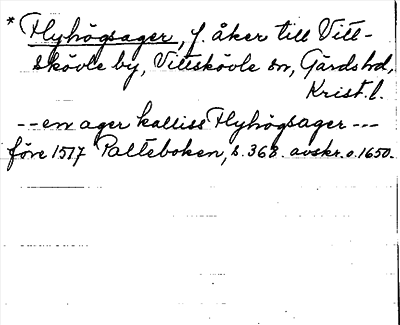 * Flyhögsager, f. åker till Vitt-
skövle by, Vittskövle sn, Gärds hd,
Krist. l.
-- en ager kalliss Flyhögsager ---
före 1517 Palteboken, s. 368. avskr. o. 1650.